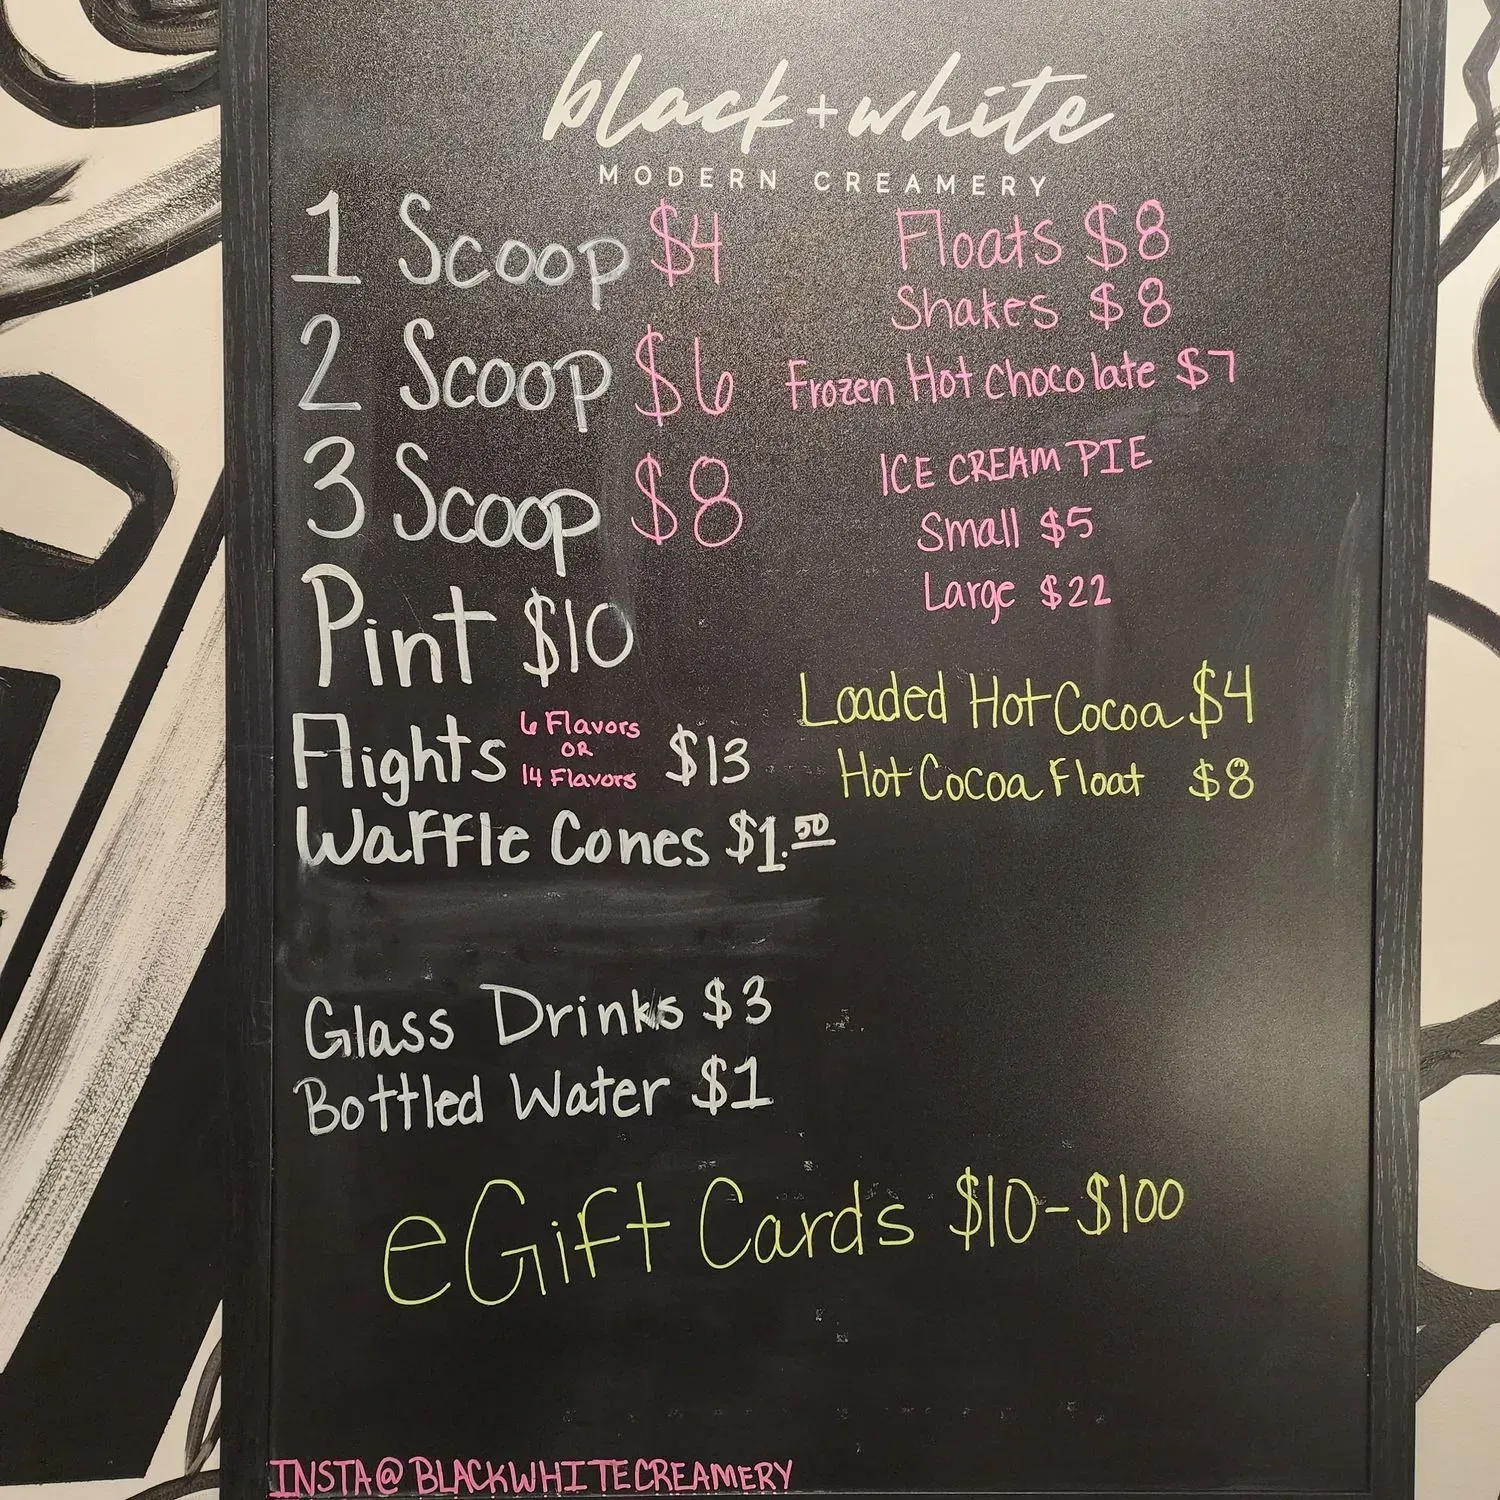 black + white
MODERN CREAMERY
1 Scoop $4
2 Scoop $6
3 Scoop $8
Pint $10
Flights 6 Flavors OR 14 Flavors $13
Waffle Cones $1.50
Glass Drinks $3
Bottled Water $1
Floats $8
Shakes $8
Frozen Hot Chocolate $7
ICE CREAM PIE
Small $5
Large $22
Loaded Hot Cocoa $4
Hot Cocoa Float $8
eGift Cards $10-$100
INSTA@BLACKWHITECREAMERY